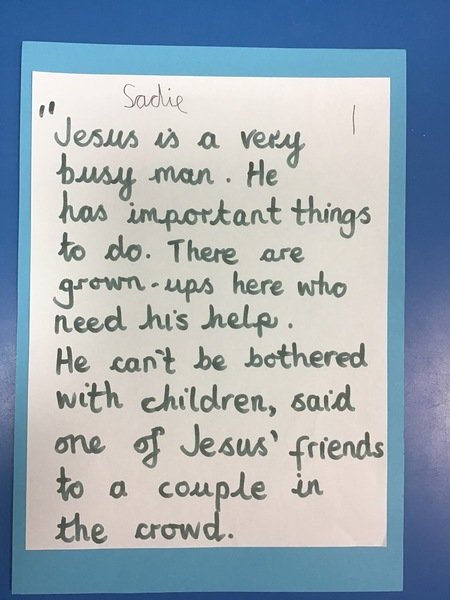 Sadie
1
"Jesus is a very
busy man. He
has important things
to do. There are
grown-ups here who
need his help.
He can't be bothered
with children, said
one of Jesus' friends
to a couple in
the crowd.